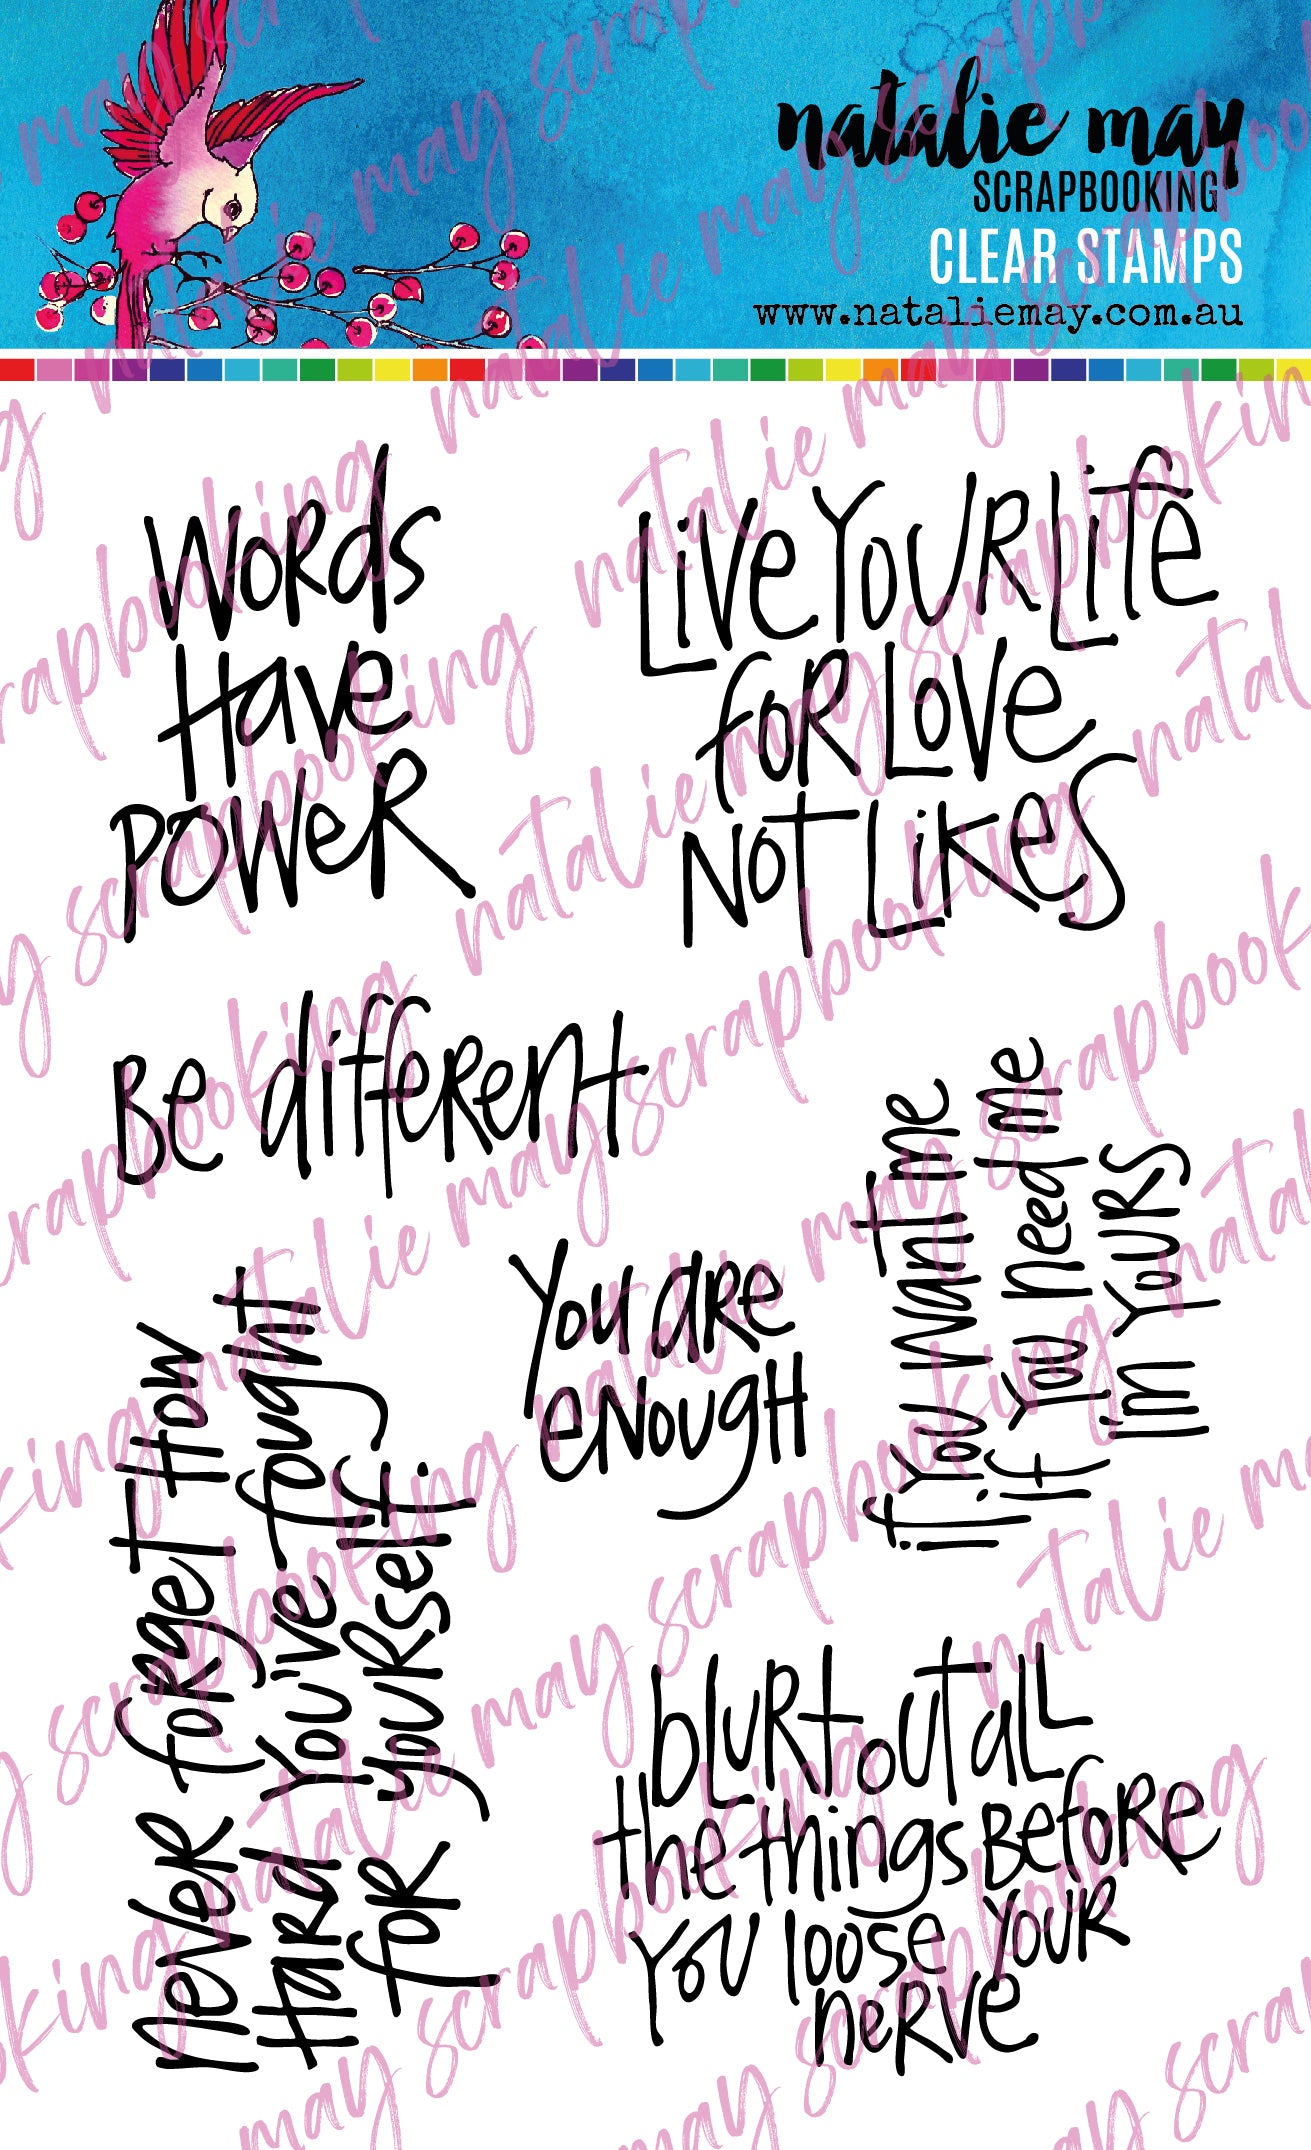 natalie may
SCRAPBOOKING
CLEAR STAMPS
www.nataliemay.com.au
Words
Have
Power
Live Your Life
for Love
Not Likes
Be different
if You want me
if You need me
im Yours
You are
enough
never forget How
Hard You've fought
for yourself.
blurt out all
the things Before
You loose Your
nerve
natalie may scrapbooking